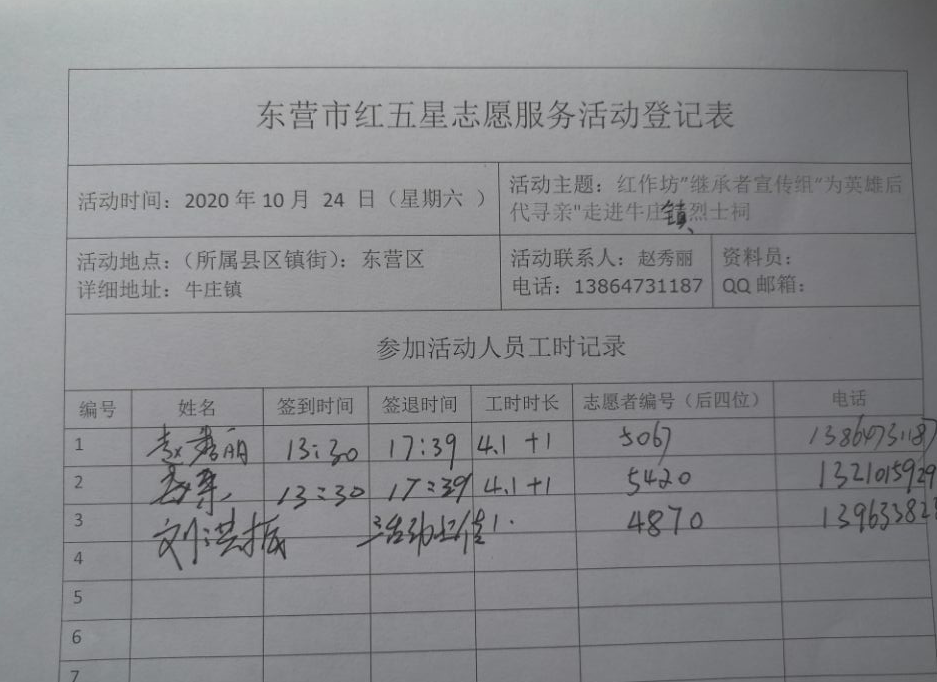 东营市红五星志愿服务活动登记表
活动时间：2020 年 10 月 24 日（星期六 ）
活动主题：红作坊"继承者宣传组"为英雄后
代寻亲"走进牛庄镇烈士祠
活动地点：（所属县区镇街）：东营区
详细地址：牛庄镇
活动联系人：赵秀丽
电话：13864731187
资料员：
QQ 邮箱：
参加活动人员工时记录
编号 姓名 签到时间 签退时间 工时时长 志愿者编号（后四位） 电话
1 赵秀丽 13:30 17:39 4.1 +1 5067 13864731187
2 13:30 17:39 4.1+1 5420 1321015929
3 刘洪振 活动 1. 4870 13963382
4
5
6
7